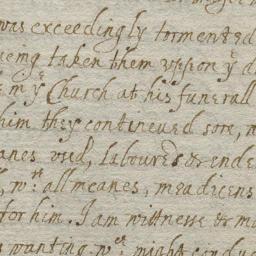 was exceedingly tormented
being taken them uppon yͤ d
yͤ Church at his funerall
him they contineued sore, a
anes used, laboured & ende
, wᵗʰ all meanes, meadicens
for him. I am wittnesse & m
wanting, wᶜʰ might conduc